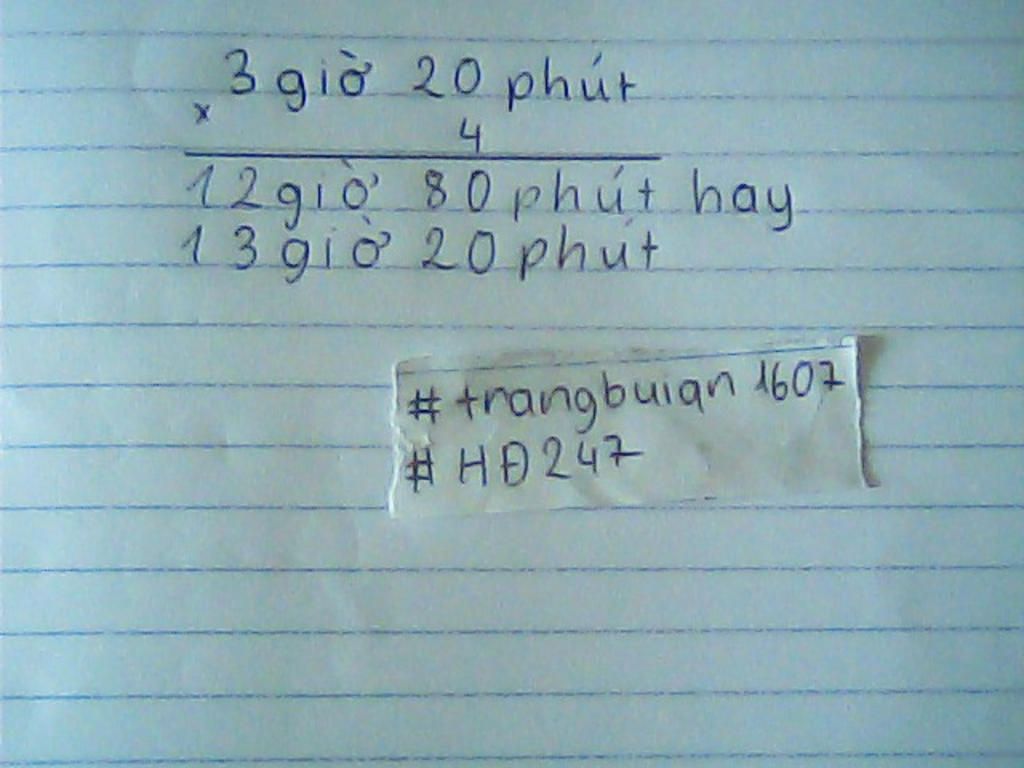 3 giờ 20 phút
x
4
12 giờ 80 phút hay
13 giờ 20 phút
# trangbuian 1607
# HĐ247